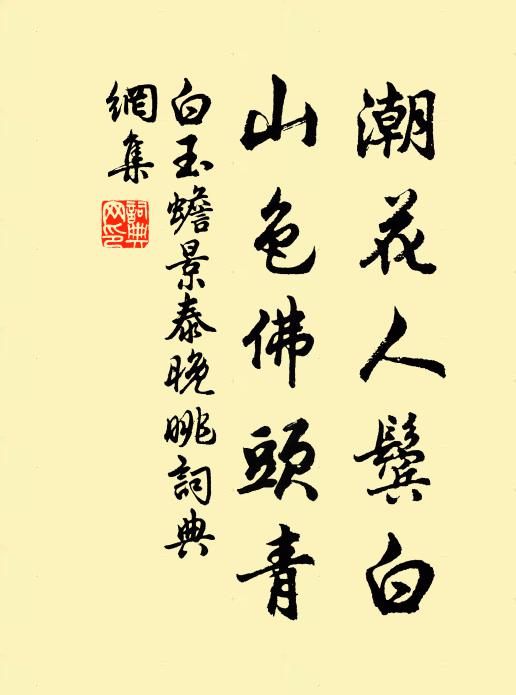 潮花人鬓白
山色佛頭青
白玉蟾景泰晚眺詞典
網集
詞典
网印